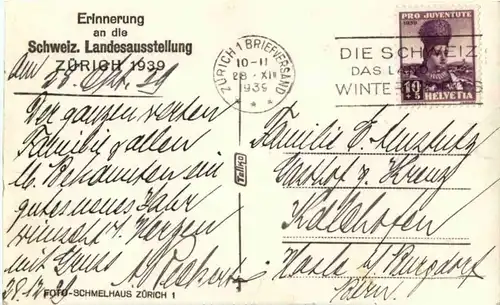 Erinnerung
an die
Schweiz. Landesausstellung
ZÜRICH 1939
Der ganzen werten
Familie & allen
lb. Bekannten ein
gutes neues Jahr
wünscht v. Herzen
mit Gruss
28.12.39
FOTO-SCHMELHAUS ZÜRICH 1
Telko
ZÜRICH 1 BRIEFVERSAND
10-11
28.XII
1939
DIE SCHWEIZ
DAS
WINTER
PRO JUVENTUTE
1939
10+5
HELVETIA
Familie E.
Gasthof z. Kreuz
Kalchofen
Hasle b/Burgdorf
Bern.